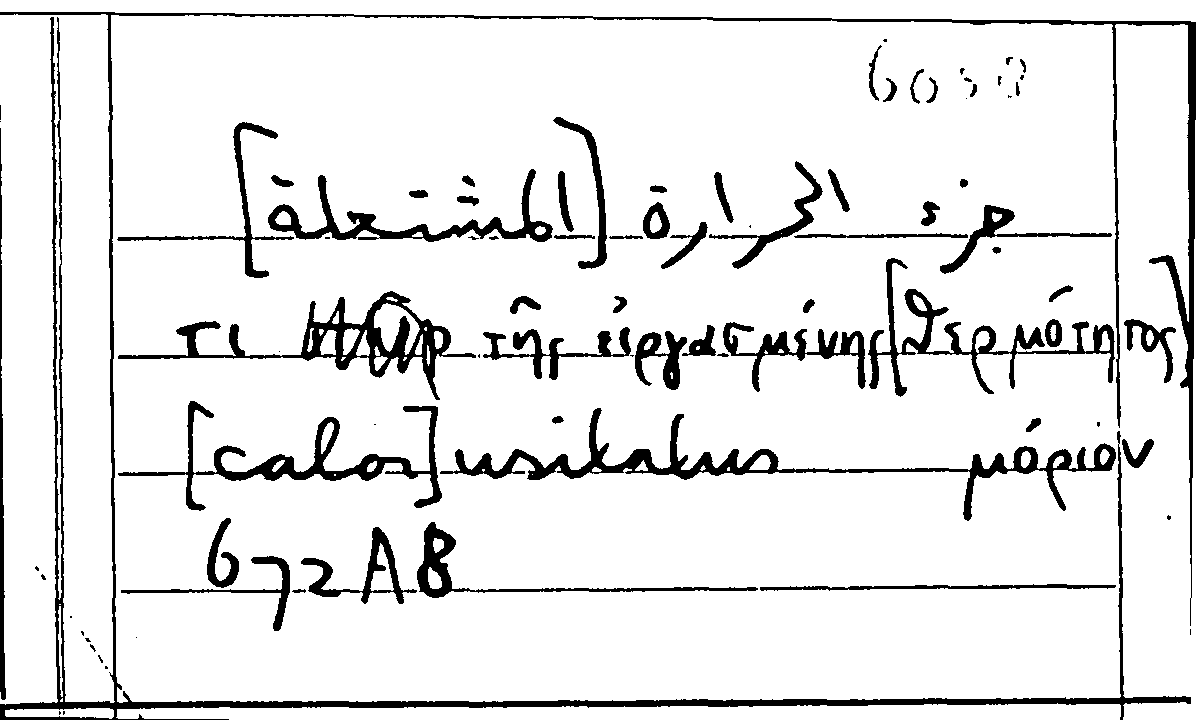 جزء الحرارة [المشتعلة]
τι τῆς εἰργασμένης [θερμότητος]
[calor] usitatus μόριον
672 A8